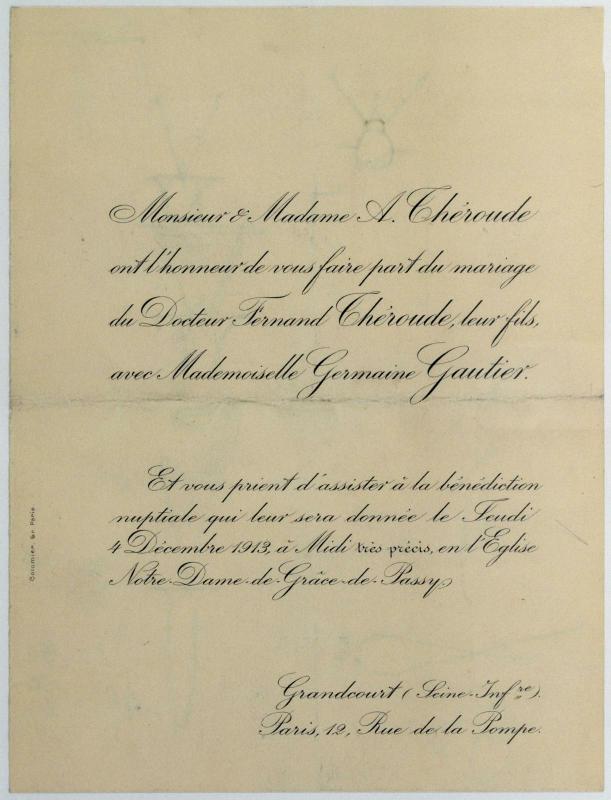 Monsieur & Madame A. Théroude
ont l'honneur de vous faire part du mariage
du Docteur Fernand Théroude, leur fils,
avec Mademoiselle Germaine Gautier.
Et vous prient d'assister à la bénédiction
nuptiale qui leur sera donnée le Jeudi
4 Décembre 1913, à Midi très précis, en l'Eglise
Notre-Dame-de-Grâce-de-Passy
Grandcourt (Seine-Infre).
Paris, 12, Rue de la Pompe.
Colomier, Gr. Paris